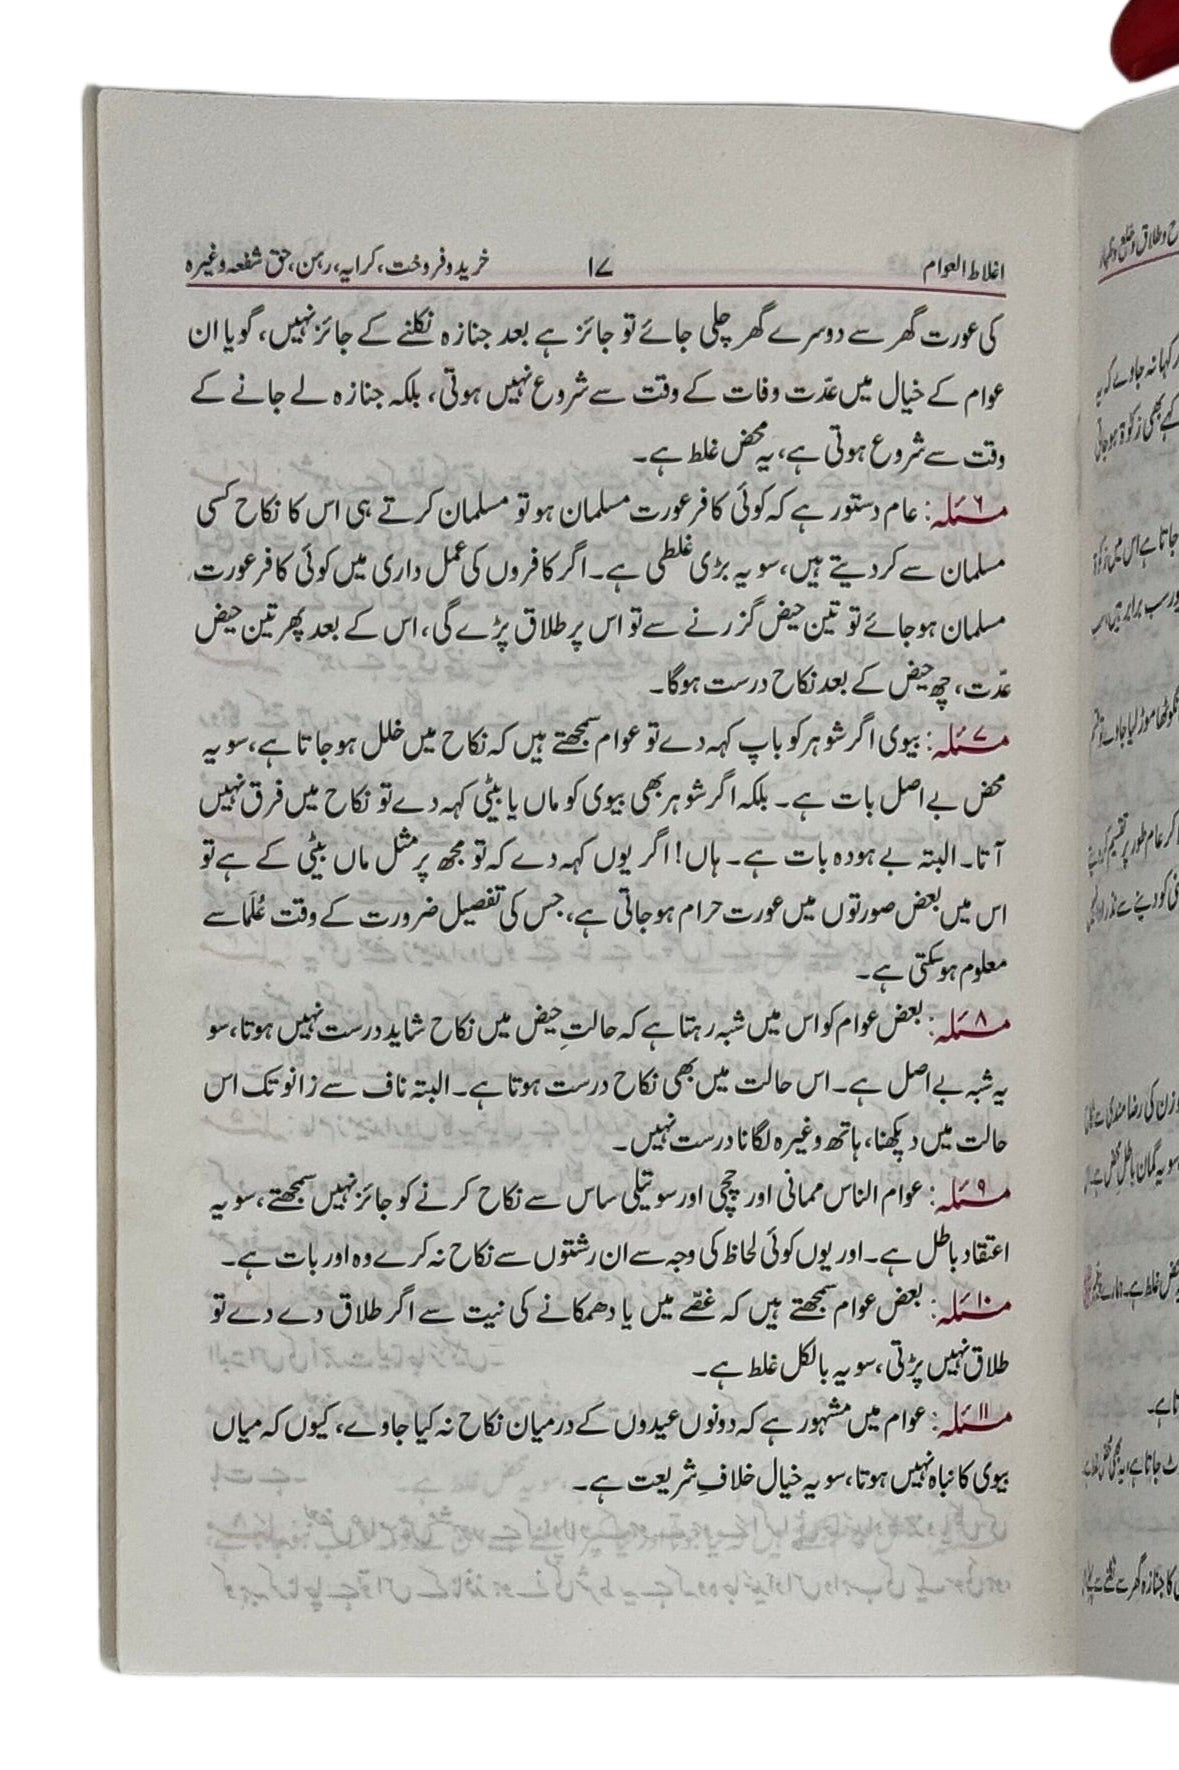 اغلاط العوام ۱۷ خرید و فروخت، کرایہ، رہن، حق شفعہ وغیرہ
کی عورت گھر سے دوسرے گھر چلی جائے تو جائز ہے بعد جنازہ نکلنے کے جائز نہیں، گویا ان
عوام کے خیال میں عدّت وفات کے وقت سے شروع نہیں ہوتی، بلکہ جنازہ لے جانے کے
وقت سے شروع ہوتی ہے، یہ محض غلط ہے۔
مسئلہ ۶: عام دستور ہے کہ کوئی کافر عورت مسلمان ہو تو مسلمان کرتے ہی اس کا نکاح کسی
مسلمان سے کردیتے ہیں، سو یہ بڑی غلطی ہے۔ اگر کافروں کی عمل داری میں کوئی کافر عورت
مسلمان ہوجائے تو تین حیض گزرنے سے تو اس پر طلاق پڑے گی، اس کے بعد پھر تین حیض
عدّت، چھ حیض کے بعد نکاح درست ہوگا۔
مسئلہ ۷: بیوی اگر شوہر کو باپ کہہ دے تو عوام سمجھتے ہیں کہ نکاح میں خلل ہوجاتا ہے، سو یہ
محض بے اصل بات ہے۔ بلکہ اگر شوہر بھی بیوی کو ماں یا بیٹی کہہ دے تو نکاح میں فرق نہیں
آتا۔ البتہ بے ہودہ بات ہے۔ ہاں! اگر یوں کہہ دے کہ تو مجھ پر مثل ماں بیٹی کے ہے تو
اس میں بعض صورتوں میں عورت حرام ہوجاتی ہے، جس کی تفصیل ضرورت کے وقت عُلَما سے
معلوم ہوسکتی ہے۔
مسئلہ ۸: بعض عوام کو اس میں شبہ رہتا ہے کہ حالتِ حیض میں نکاح شاید درست نہیں ہوتا، سو
یہ شبہ بے اصل ہے۔ اس حالت میں بھی نکاح درست ہوتا ہے۔ البتہ ناف سے زانو تک اس
حالت میں دیکھنا، ہاتھ وغیرہ لگانا درست نہیں۔
مسئلہ ۹: عوام الناس ممانی اور چچی اور سوتیلی ساس سے نکاح کرنے کو جائز نہیں سمجھتے، سو یہ
اعتقاد باطل ہے۔ اور یوں کوئی لحاظ کی وجہ سے ان رشتوں سے نکاح نہ کرے وہ اور بات ہے۔
مسئلہ ۱۰: بعض عوام سمجھتے ہیں کہ غصّے میں یا دھمکانے کی نیت سے اگر طلاق دے دے تو
طلاق نہیں پڑتی، سو یہ بالکل غلط ہے۔
مسئلہ ۱۱: عوام میں مشہور ہے کہ دونوں عیدوں کے درمیان نکاح نہ کیا جاوے، کیوں کہ میاں
بیوی کا نباہ نہیں ہوتا، سو یہ خیال خلافِ شریعت ہے۔